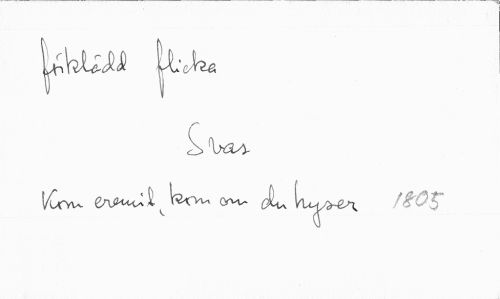 förklädd flicka
Svas
Kom eremit, kom om du hyser 1805